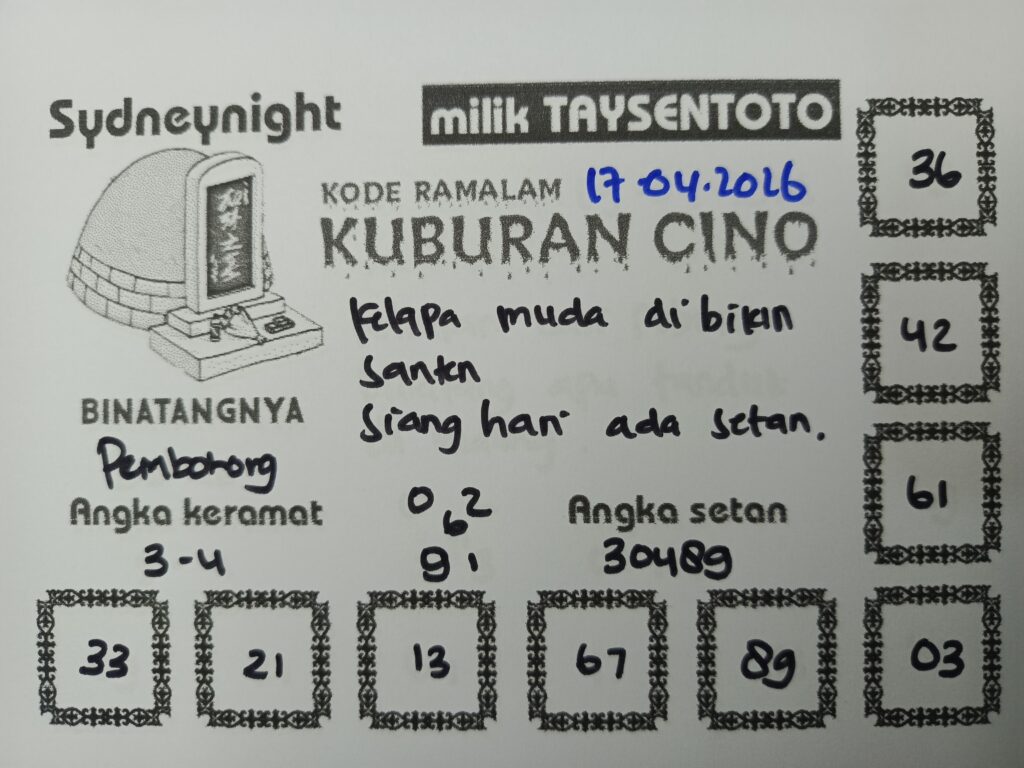 Sydneynight
milik TAYSENTOTO
KODE RAMALAM 17-04-2026
KUBURAN CINO
Kelapa muda dibikin
Santen
Siang hari ada setan.
BINATANGNYA
Pemborong
Angka keramat
3-4
0 6 2
9 1
Angka setan
30489
36
42
61
33 21 13 67 89 03